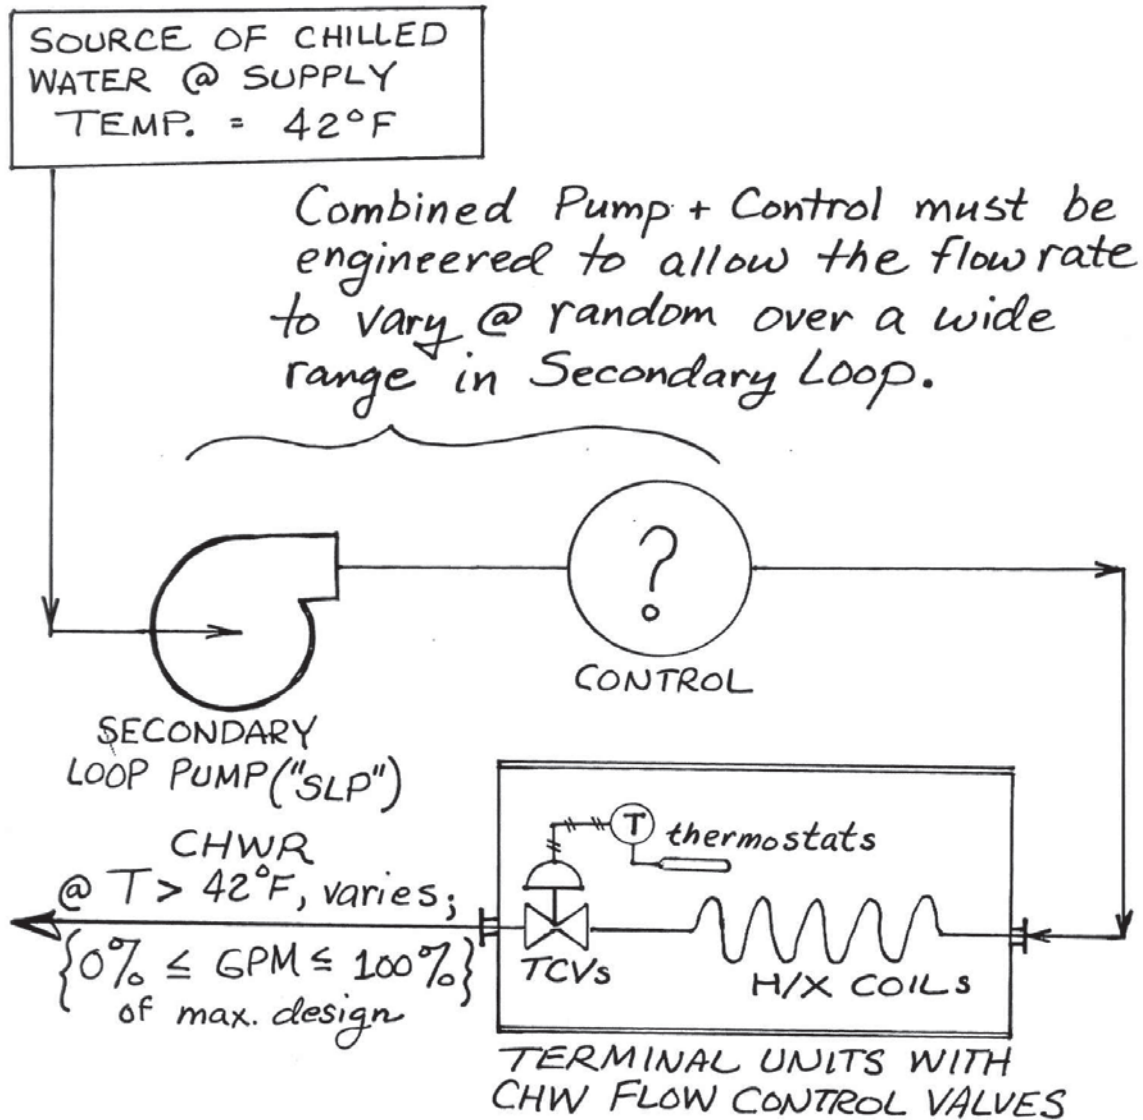 SOURCE OF CHILLED
WATER @ SUPPLY
TEMP. = 42°F
Combined Pump + Control must be
engineered to allow the flow rate
to vary @ random over a wide
range in Secondary Loop.
?
CONTROL
SECONDARY
LOOP PUMP ("SLP")
CHWR
@ T > 42°F, varies;
{0% ≤ GPM ≤ 100%}
of max. design
T
thermostats
TCVs
H/X COILs
TERMINAL UNITS WITH
CHW FLOW CONTROL VALVES